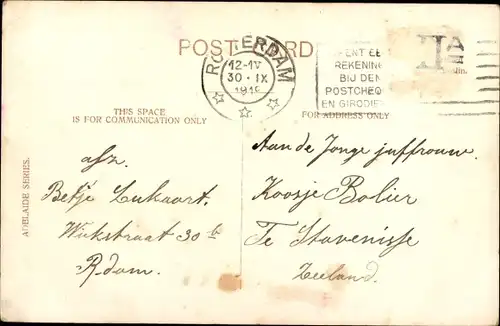 POST CARD
ROTTERDAM
12-1V
30·IX
OPENT EE
REKENING
BIJ DEN
POSTCHEQ
EN GIRODIE
THIS SPACE
IS FOR COMMUNICATION ONLY
FOR ADDRESS ONLY
ADELAIDE SERIES.
afz.
Betje Lukaart.
Wickstraat 30b
R.dam.
Aan de Jonge juffrouw.
Koosje Bolier
Te Stavenisse
Zeeland.